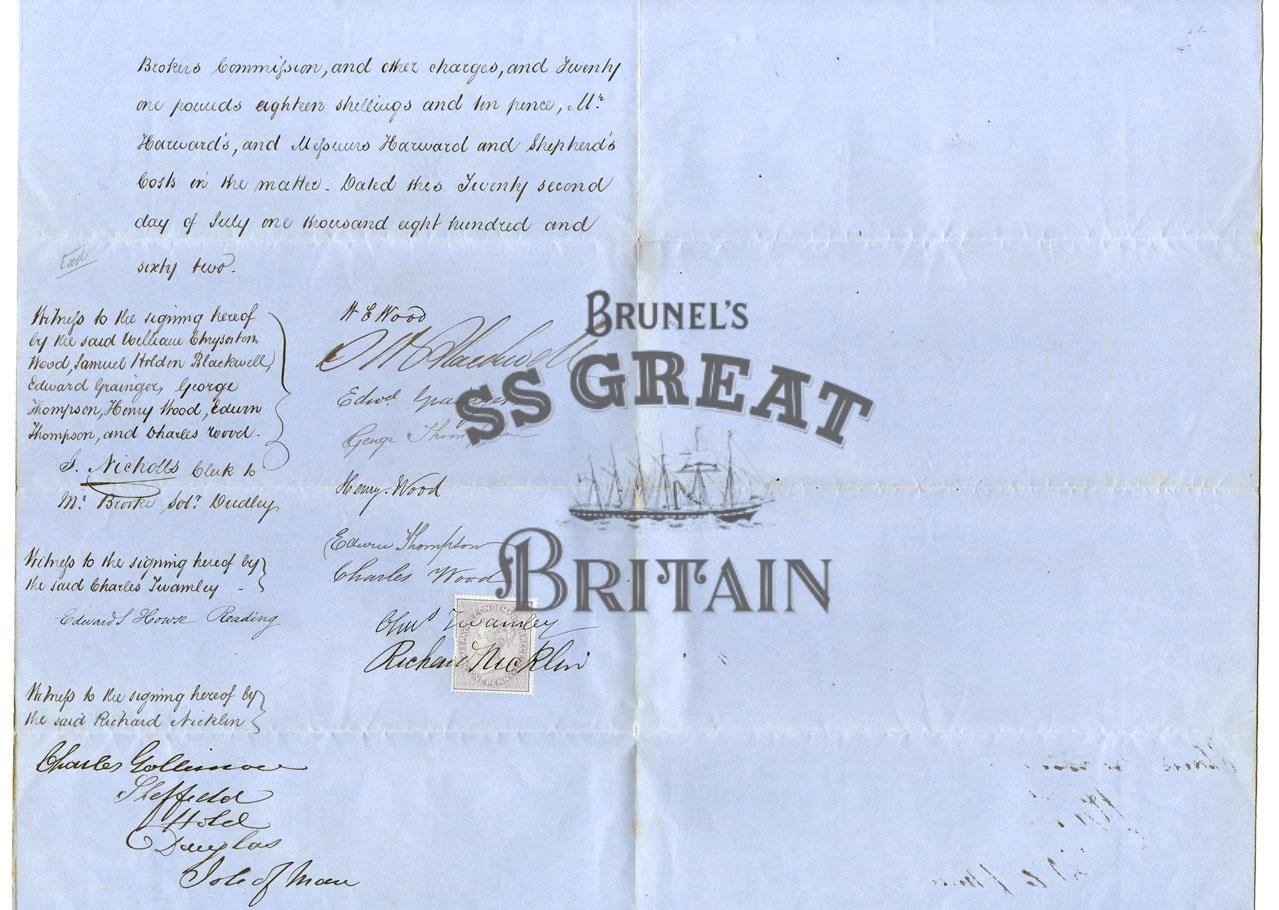 Brokers Commission, and other charges, and Twenty
one pounds eighteen shillings and ten pence, Mr
Harward's, and Messieurs Harward and Shepherd's
Costs in the matter. Dated this Twenty second
day of July one thousand eight hundred and
sixty two.
Witness to the signing hereof
by the said William Chrysostom
Wood, Samuel Holden Blackwell,
Edward Grainger, George
Thompson, Henry Wood, Edwin
Thompson, and Charles Wood.
S. Nicholls Clerk to
Mr. Brooke Solr. Dudley
W C Wood
S H Blackwell
Edwd. Grainger
George Thompson
Henry Wood
Edwin Thompson
Charles Wood
Witness to the signing hereof by
the said Charles Twamley
Edward S Howse Reading
Chas Twamley
Richard Nicklin
ONE PENNY
Witness to the signing hereof by
the said Richard Nicklin
Charles
Sheffield
Hotel
Douglas
Isle of Man
BRUNEL'S
SS GREAT
BRITAIN